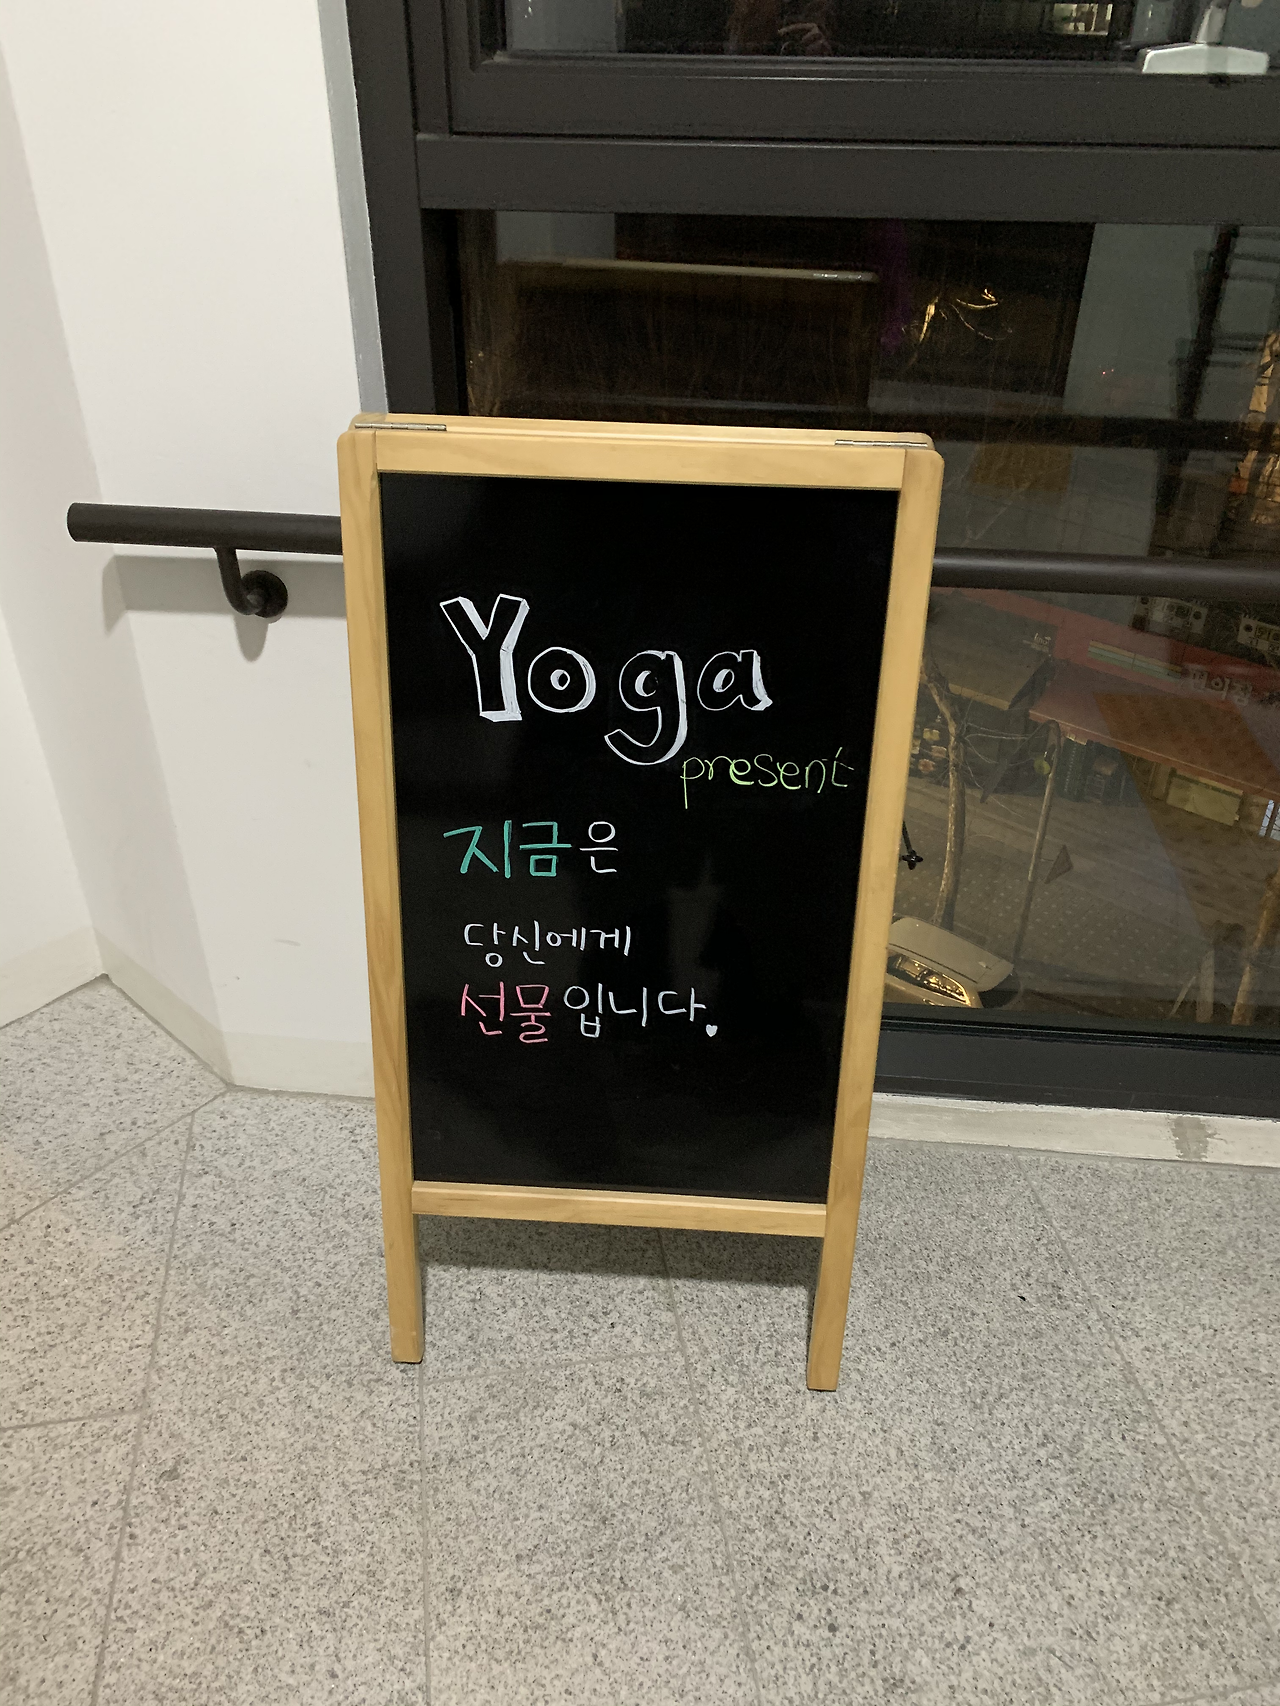 Yoga
present
지금은
당신에게
선물입니다.